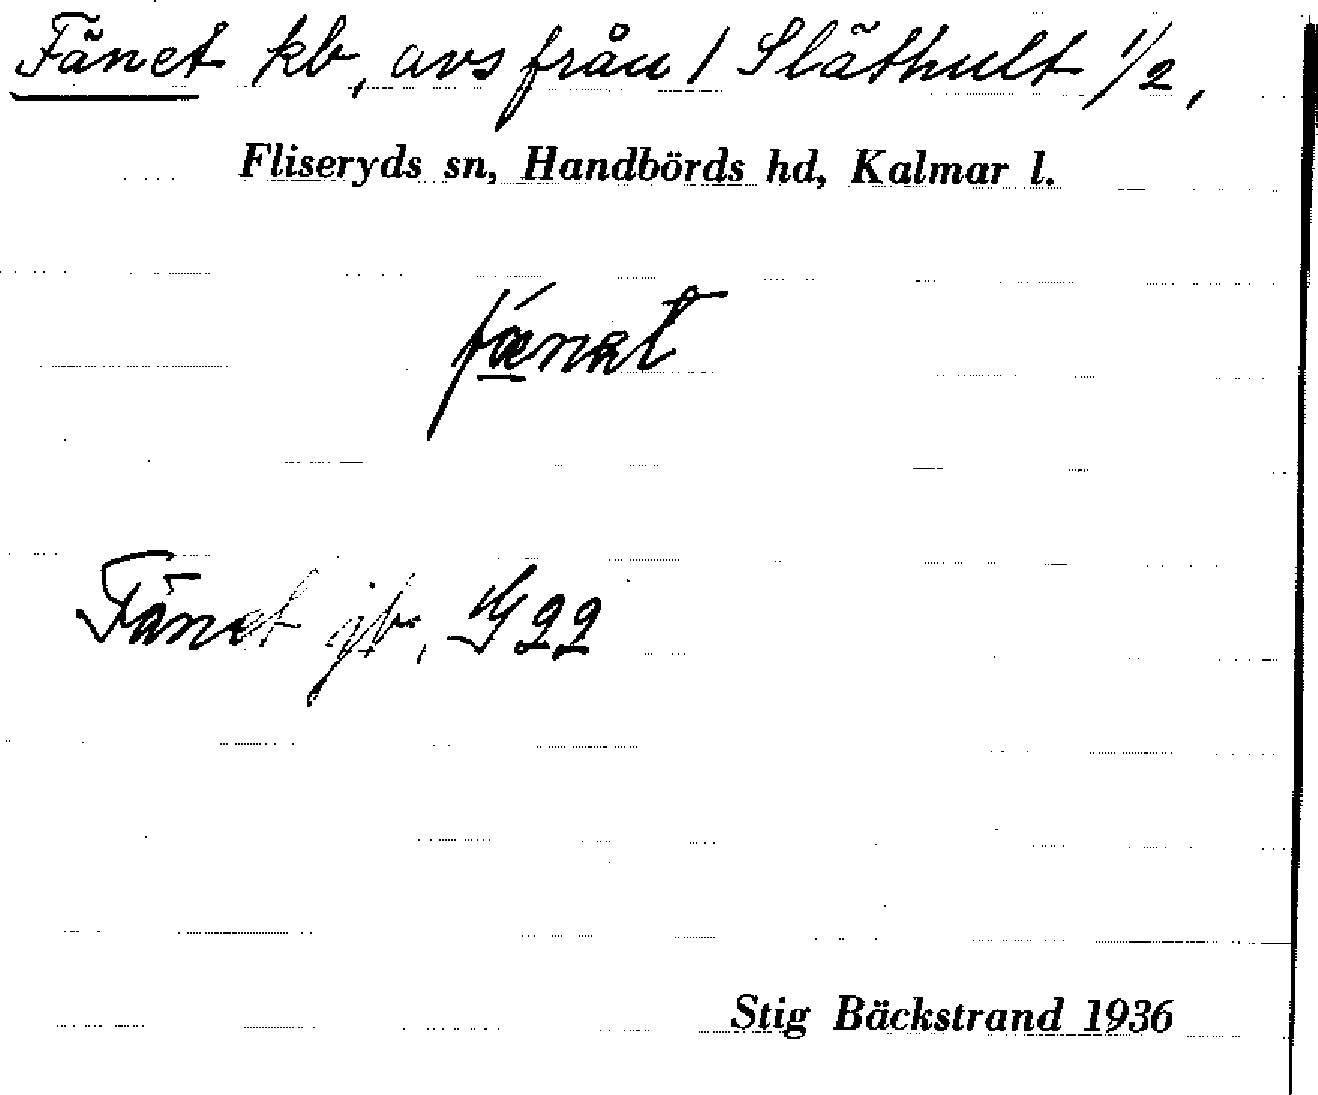 Fänet kb, avs från 1 Släthult 1/2,
Fliseryds sn, Handbörds hd, Kalmar l.
fǽnət
Fänet jb, G 22
Stig Bäckstrand 1936